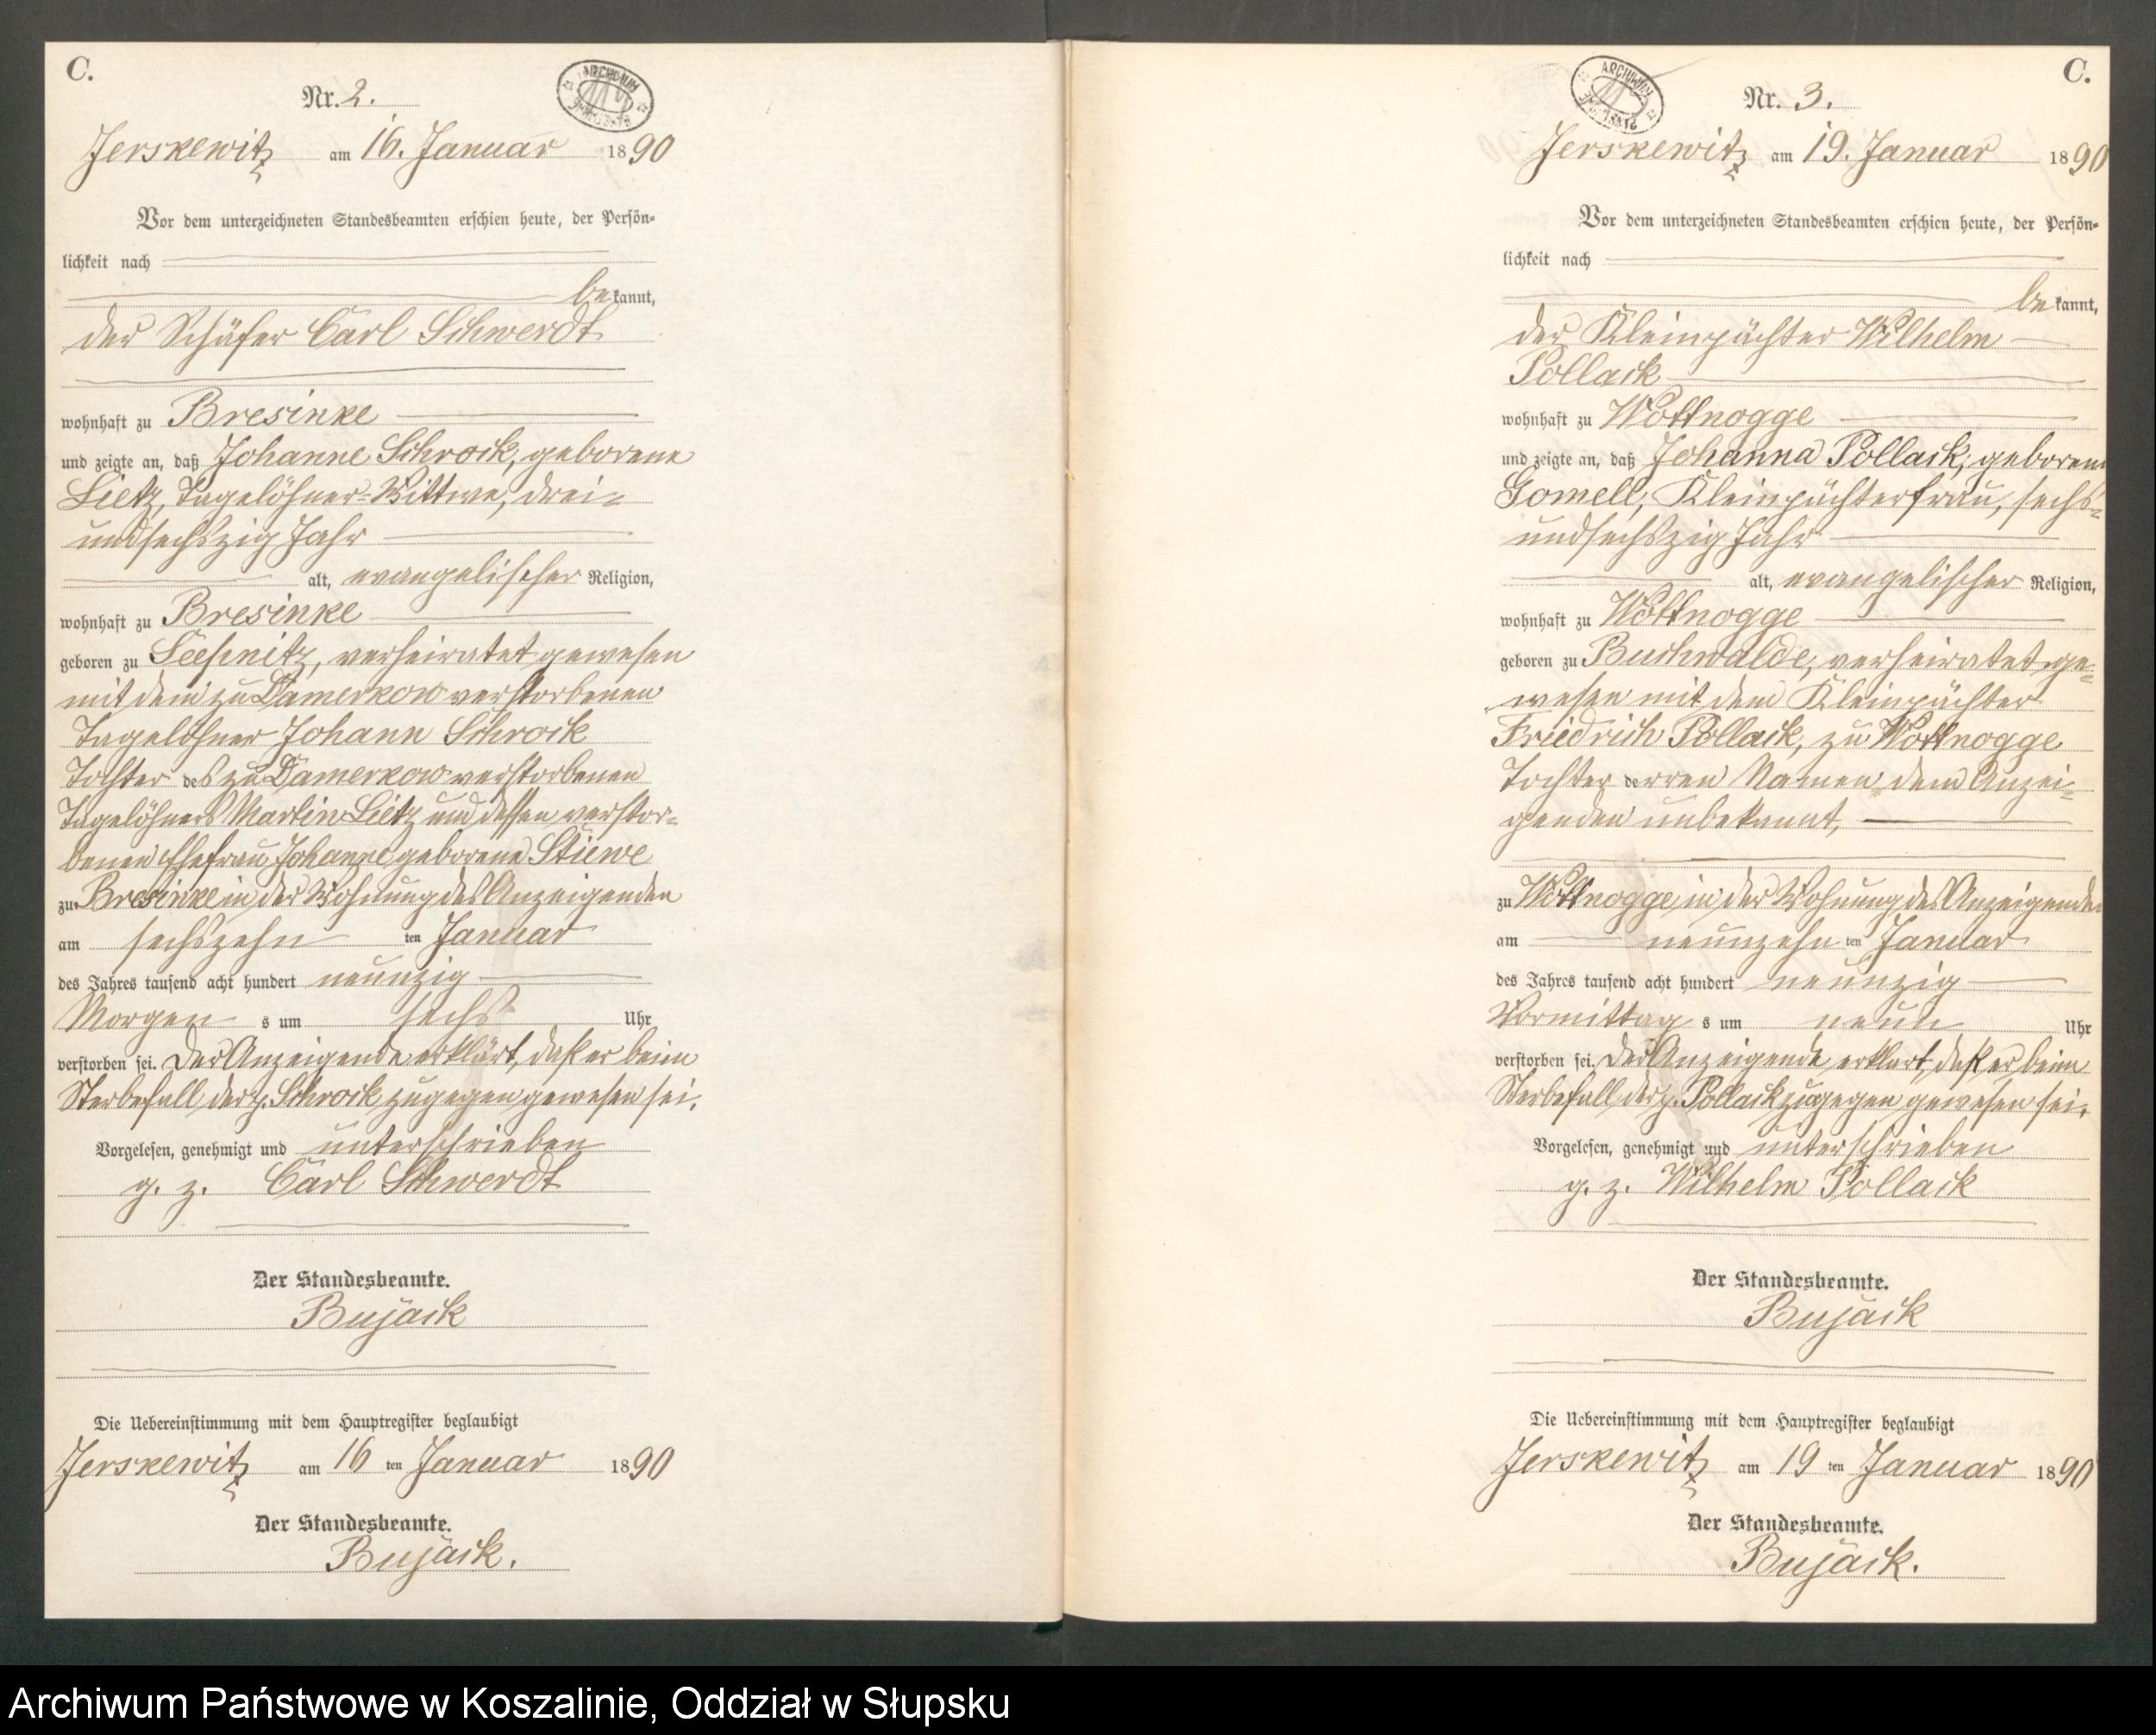 C.
Nr. 2.
ARCHIWUM
Jerskewitz am 16. Januar 1890
Vor dem unterzeichneten Standesbeamten erschien heute, der Persön-
lichkeit nach
bekannt,
der Schäfer Carl Schwerdt
wohnhaft zu Bresinke
und zeigte an, daß Johanne Schrock, geborene
Lietz, Tagelöhner-Wittwe, drei-
undsechszig Jahr
alt, evangelischer Religion,
wohnhaft zu Bresinke
geboren zu verheiratet gewesen
mit dem zu Damerkow verstorbenen
Tagelöhner Johann Schrock
Tochter des zu Damerkow verstorbenen
Tagelöhners Martin Lietz und dessen verstor-
benen Ehefrau Johanne geborene Stüewe
zu Bresinke in der Wohnung des Anzeigenden
am sechszehn ten Januar
des Jahres tausend acht hundert neunzig
Morgen s um sechs Uhr
verstorben sei. Der Anzeigende erklärt, daß er beim
Sterbefall der p. Schrock zugegen gewesen sei.
Vorgelesen, genehmigt und unterschrieben
g. z. Carl Schwerdt
Der Standesbeamte.
Bujack
Die Uebereinstimmung mit dem Hauptregister beglaubigt
Jerskewitz am 16 ten Januar 1890
Der Standesbeamte.
Bujack.
C.
Nr. 3.
ARCHIWUM
Jerskewitz am 19. Januar 1890
Vor dem unterzeichneten Standesbeamten erschien heute, der Persön-
lichkeit nach
bekannt,
der Kleinpächter Wilhelm
Pollack
wohnhaft zu Wottnogge
und zeigte an, daß Johanna Pollack, geborene
Gomell, Kleinpächterfrau, sechs-
undsechszig Jahr
alt, evangelischer Religion,
wohnhaft zu Wottnogge
geboren zu Buchwalde, verheiratet ge-
wesen mit dem Kleinpächter
Friedrich Pollack, zu Wottnogge
Tochter derren Namen dem Anzei-
genden unbekannt,
zu Wottnogge, in der Wohnung des Anzeigenden
am neunzehn ten Januar
des Jahres tausend acht hundert neunzig
Vormittag s um neun Uhr
verstorben sei. Der Anzeigende erklärt, daß er beim
Sterbefall der p. Pollack zugegen gewesen sei.
Vorgelesen, genehmigt und unterschrieben
g. z. Wilhelm Pollack
Der Standesbeamte.
Bujack
Die Uebereinstimmung mit dem Hauptregister beglaubigt
Jerskewitz am 19 ten Januar 1890
Der Standesbeamte.
Bujack.
Archiwum Państwowe w Koszalinie, Oddział w Słupsku